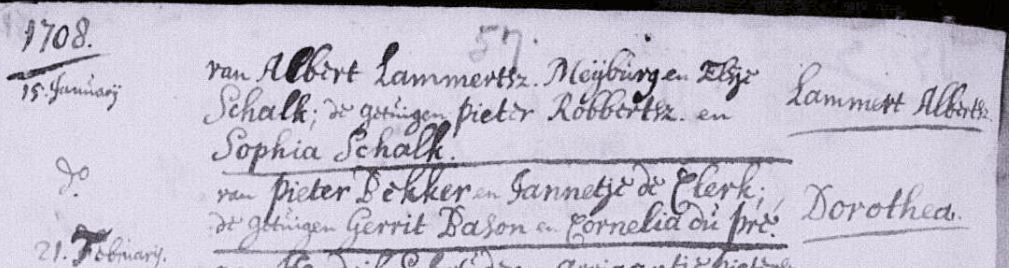 1708.
57.
15. Januarij
van Albert Lammertsz. Meÿburg en Elsje
Schalk; de getuigen Pieter Robbertsz. en
Sophia Schalk.
Lammert Albertsz.
do
van Pieter Dekker en Jannetje de Clerk;
de getuigen Gerrit Dason en Cornelia du Pré.
Dorothea.
21. Februarij.